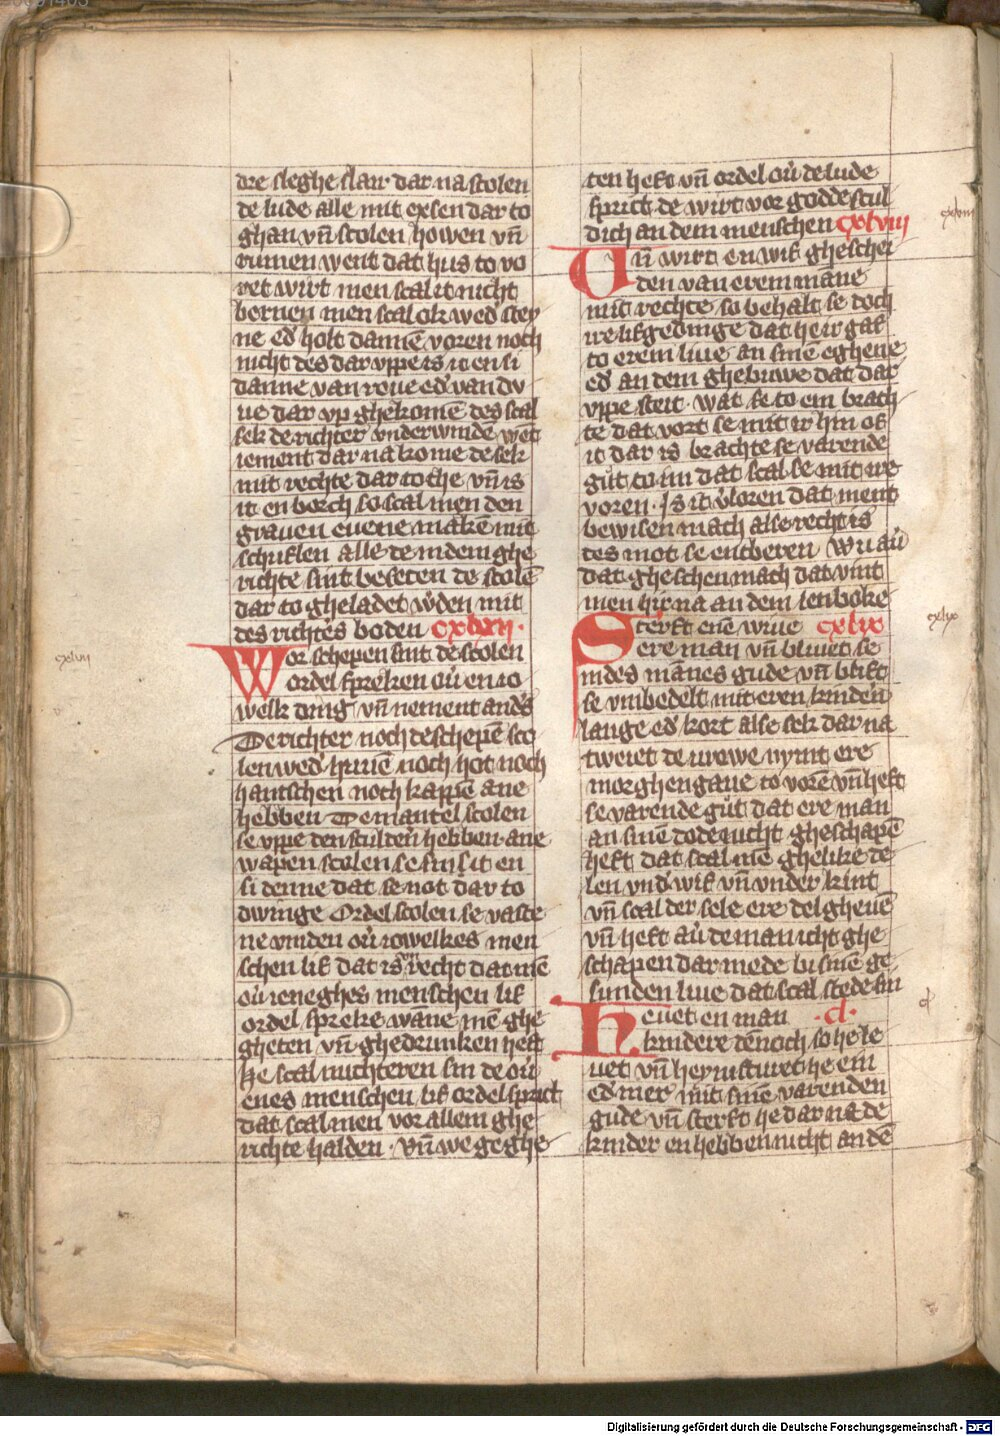 dre sleghe slan dar na scolen
de lude alle mit exsen dar to
ghan vn̄ scolen howen vn̄
rumen went dat hus to vo
ret wirt men scal it nicht
bernen men scal ok wed' stey
ne ed' holt dannē voren noch
nicht des dar vppe is it en si
danne van roue ed' van du
ue dar vp ghekomē des scal
sek de richter vnderwindē wēt
iement dar na kome de sek
mit rechte dar to the vn̄ is
it en borch so scal men den
grauen euene makē mit
schuflen alle de in dem ghe
richte sint beseten de scolē
dar to gheladet w'den mit
des richt's boden cxlvii ·
Wor schepen sint de scolen
ordel spreken ou' en io
welk ding vn̄ nement and's
De richter noch de schepē sco
len wed' huuē noch hot noch
hantschen noch kappē ane
hebben De mantel scolen
se vppe den sculd'n hebben ane
wapen scolen se sin s it en
si denne dat se not dar to
dwinge Ordel scolen se vaste
ne vinden ou' iowelkes men
schen lif dat is recht dat mē
ou' ieneghes menschen lif
ordel spreke wane mē ghe
gheten vn̄ ghedrunken heft
he scal nuchteren sin de ou'
enes menschen lif ordel sprict
dat scal men vor allem ghe
richte halden · vn̄ we geghe
ten heft vn̄ ordel ou' de lude
sprict de wirt vor godde scul
dich an dem menschen cxlviii
Un̄ wirt en wif gheschei
den van erem māne
mit rechte so behalt se doch
ire lifgedinge dat he ir gaf
to erem liue an sinē eghene
ed' an dem ghebuwe dat dar
vppe steit · wat se to em brach
te dat vort se mit ir hin of
it dar is brachte se varende
gut to im dat scal se mit ire
voren · Is it v'loren dat ment
bewisen mach alse recht is
des mot se entberen Wu au'
dat gheschen mach dat vint
men hir na an dem lenboke
Sterft enē wiue cxlix
ere man vn̄ bliuet se
in des mānes gude vn̄ blift
se vmbedelt mit eren kind'n
lange ed' kort alse sek dar na
tweiet de vrowe nymt ere
morghengaue to vorē vn̄ heft
se varende gut dat ere man
an sinē dode nicht gheschapē
heft dat scal mē ghelike de
len vnd' wif vn̄ vnder kint
vn̄ scal der sele ere del gheuē
vn̄ heft au' de man icht ghe
schapen dar mede bi sinē ge
sunden liue dat scal stede sin
Heuet en man · cl ·
kindere dēnoch so he le
uet vn̄ he yn sturet he ein
ed' mer mit sinē varenden
gude vn̄ sterft he dar na de
kinder en hebben nicht an dē
cxlvii
cxlviii
cxlix
cl
Digitalisierung gefördert durch die Deutsche Forschungsgemeinschaft - DFG